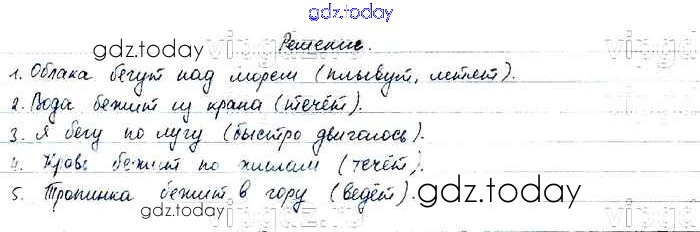 gdz.today
Решение.
gdz.today
1. Облака бегут над морем (плывут, летят).
2. Вода бежит из крана (течёт).
3. Я бегу по лугу (быстро двигалось).
4. Кровь бежит по жилам (течёт).
5. Тропинка бежит в гору (ведёт).
gdz.today
gdz.today